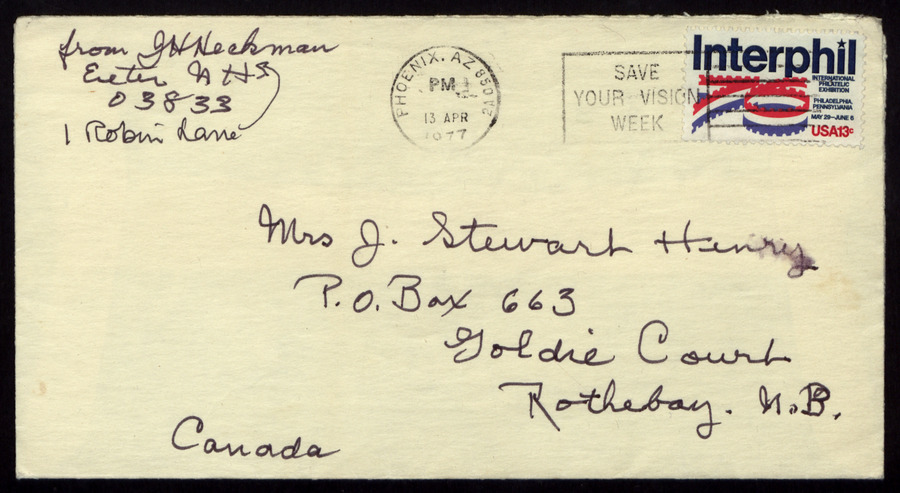 from JH Heckman
Exeter NHS
03833
1 Robin Lane
PHOENIX, AZ 850
PM
13 APR
1977
SAVE
YOUR VISION
WEEK
Interphil
INTERNATIONAL
PHILATELIC
EXHIBITION
PHILADELPHIA,
PENNSYLVANIA
MAY 29–JUNE 6
USA13c
Mrs J. Stewart Henry
P.O. Box 663
Goldie Court
Rothebay. N.B.
Canada